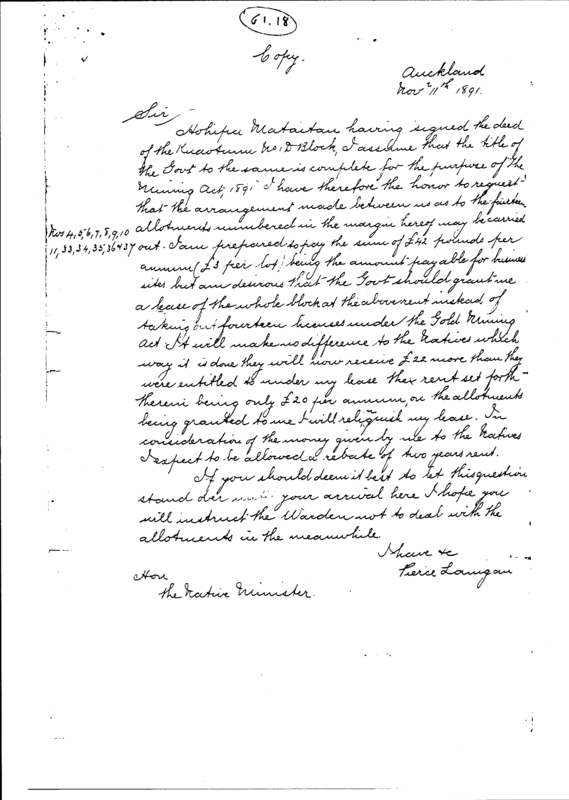 61.18
Copy.
Auckland
Novr 11th 1891.
Sir
Hohepa Mataitau having signed the deed
of the Kuaotunu No. 1D Block, I assume that the title of
the Govt to the same is complete for the purpose of the
Mining Act, 1891 I have therefore the honor to request
that the arrangement made between us as to the fourteen
allotments numbered in the margin hereof may be carried
Nos 4, 5, 6, 7, 8, 9, 10
11, 33, 34, 35, 36 & 37
out. I am prepared to pay the sum of £42 pounds per
annum (£3 per lot) being the amount payable for business
sites but am desirous that the Govt should grant me
a lease of the whole block at the above rent instead of
taking out fourteen licenses under the Gold Mining
Act. It will make no difference to the Natives which
way it is done they will now receive £22 more than they
were entitled to under my lease the rent set forth
therein being only £20 per annum, on the allotments
being granted to me I will relinquish my lease. In
consideration of the money given by me to the Natives
I expect to be allowed a rebate of two years rent.
If you should deem it best to let this question
stand over until your arrival here I hope you
will instruct the Warden not to deal with the
allotments in the meanwhile
I have &c
Pierce Lanigan
Hon
the Native Minister.